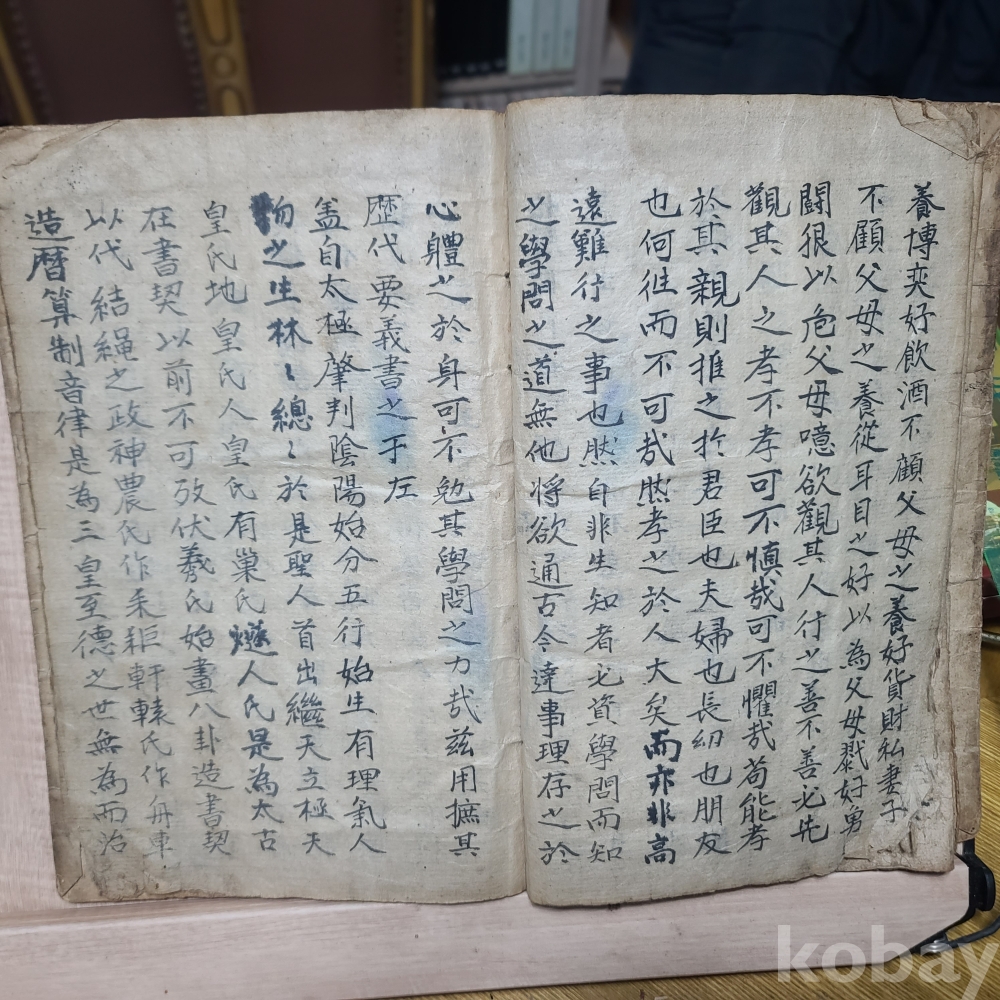 養博奕好飲酒不顧父母之養好貨財私妻子
不顧父母之養從耳目之好以為父母戮好勇
鬪狠以危父母噫欲觀其人行之善不善必先
觀其人之孝不孝可不慎哉可不懼哉苟能孝
於其親則推之於君臣也夫婦也長幼也朋友
也何徃而不可哉然孝之於人大矣而亦非高
遠難行之事也然自非生知者必資學問而知
之學問之道無他將欲通古今達事理存之於
心體之於身可不勉其學問之力哉兹用摭其
歴代要義書之于左
盖自太極肇判陰陽始分五行始生有理氣人
物之生林〻總〻於是聖人首出繼天立極天
皇氏地皇氏人皇氏有巢氏燧人氏是為太古
在書契以前不可攷伏羲氏始畫八卦造書契
以代結繩之政神農氏作耒耟軒轅氏作舟車
造曆算制音律是為三皇至德之世無為而治
kobay